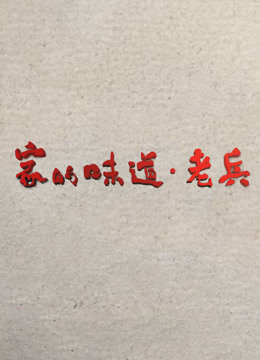 家的味道·老兵